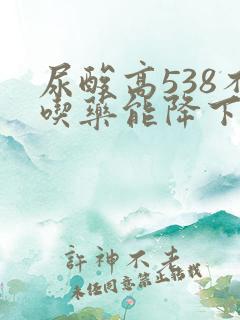 尿酸高538不
喫藥能降下
許神不老
未经同意禁止转载